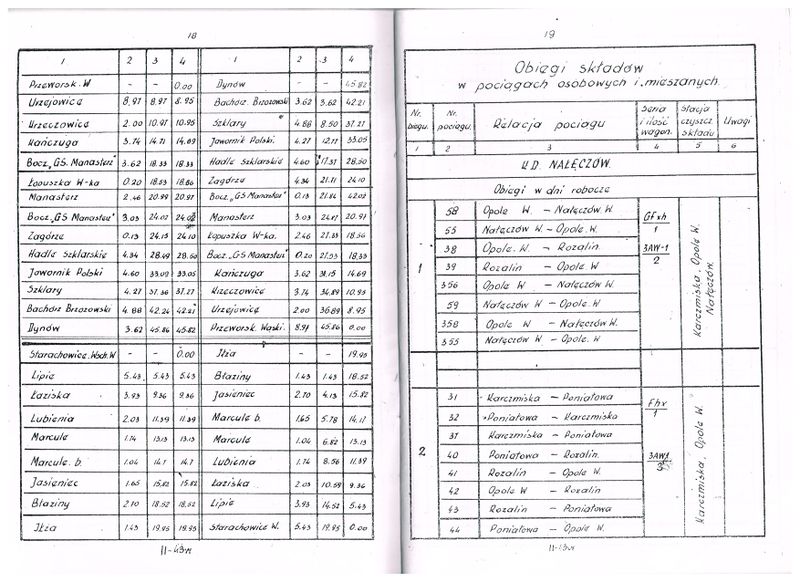 18
1 2 3 4 1 2 3 4
Przeworsk. W - - 0.00 Dynów - - 45.82
Urzejowice 8.97 8.97 8.95 Bachórz Brzozowski 3.62 3.62 42.21
Urzeczowice 2.00 10.97 10.95 Szklary 4.88 8.50 37.27
Kańczuga 3.74 14.71 14.69 Jawornik Polski 4.27 12.77 33.05
Bocz „GS. Manasterz" 3.62 18.33 18.33 Hadle Szklarskie 4.60 17.37 28.50
Łopuszka W-ka 0.20 18.53 18.56 Zagórze 4.34 21.71 24.10
Manasterz 2.46 20.99 20.97 Bocz „GS Manasterz" 0.13 21.84 42.02
Bocz „GS Manasterz" 3.03 24.02 24.02 Manasterz 3.03 24.87 20.97
Zagórze 0.13 24.15 24.10 Łopuszka W-ka. 2.46 27.33 18.56
Hadle Szklarskie 4.34 28.49 28.50 Bocz „GS Manasterz" 0.20 27.53 18.33
Jawornik Polski 4.60 33.09 33.05 Kańczuga 3.62 31.15 14.69
Szklary 4.27 37.36 37.27 Krzeczowice 3.74 34.89 10.95
Bachórz Brzozowski 4.88 42.24 42.21 Urzejowice 2.00 36.89 8.95
Dynów 3.62 45.86 45.82 Przeworsk Wąski. 8.97 45.86 0.00
Starachowice Wsch. W - - 0.00 Iłża - - 19.95
Lipie 5.43 5.43 5.43 Błaziny 1.43 1.43 18.52
Łaziska 3.93 9.36 9.36 Jasieniec 2.70 4.13 15.82
Lubienia 2.03 11.39 11.39 Marcule b. 1.65 5.78 14.17
Marcule 1.74 13.13 13.13 Marcule 1.04 6.82 13.13
Marcule. b. 1.04 14.7 14.7 Lubienia 1.74 8.56 11.39
Jasieniec 1.65 15.82 15.82 Łaziska 2.03 10.59 9.36
Błaziny 2.70 18.52 18.52 Lipie 3.93 14.52 5.43
Iłża 1.43 19.95 19.95 Starachowice W. 5.43 19.95 0.00
II-43
19
Obiegi składów
w pociągach osobowych i mieszanych.
Nr. biegu. Nr. pociągu. Relacja pociągu Seria i ilość wagon. Stacja czyszcz. składu Uwagi
1 2 3 4 5 6
U.D. NAŁĘCZÓW.
Obiegi w dni robocze
1
58 Opole W - Nałęczów W.
55 Nałęczów W - Opole W.
38 Opole. W. - Rozalin.
39 Rozalin - Opole W
356 Opole W - Nałęczów W
59 Nałęczów W - Opole W.
358 Opole W - Nałęczów W.
355 Nałęczów W - Opole. W
GFxh
1
3AW-1
2
Karczmiska, Opole W.
Nałęczów.
2
31 Karczmiska - Poniatowa
32 Poniatowa - Karczmiska
37 Karczmiska - Poniatowa
40 Poniatowa - Rozalin
41 Rozalin - Opole W.
42 Opole W - Rozalin
43 Rozalin - Poniatowa
44 Poniatowa - Opole W.
Fhx
1
3AW1
Karczmiska, Opole W.
II-43